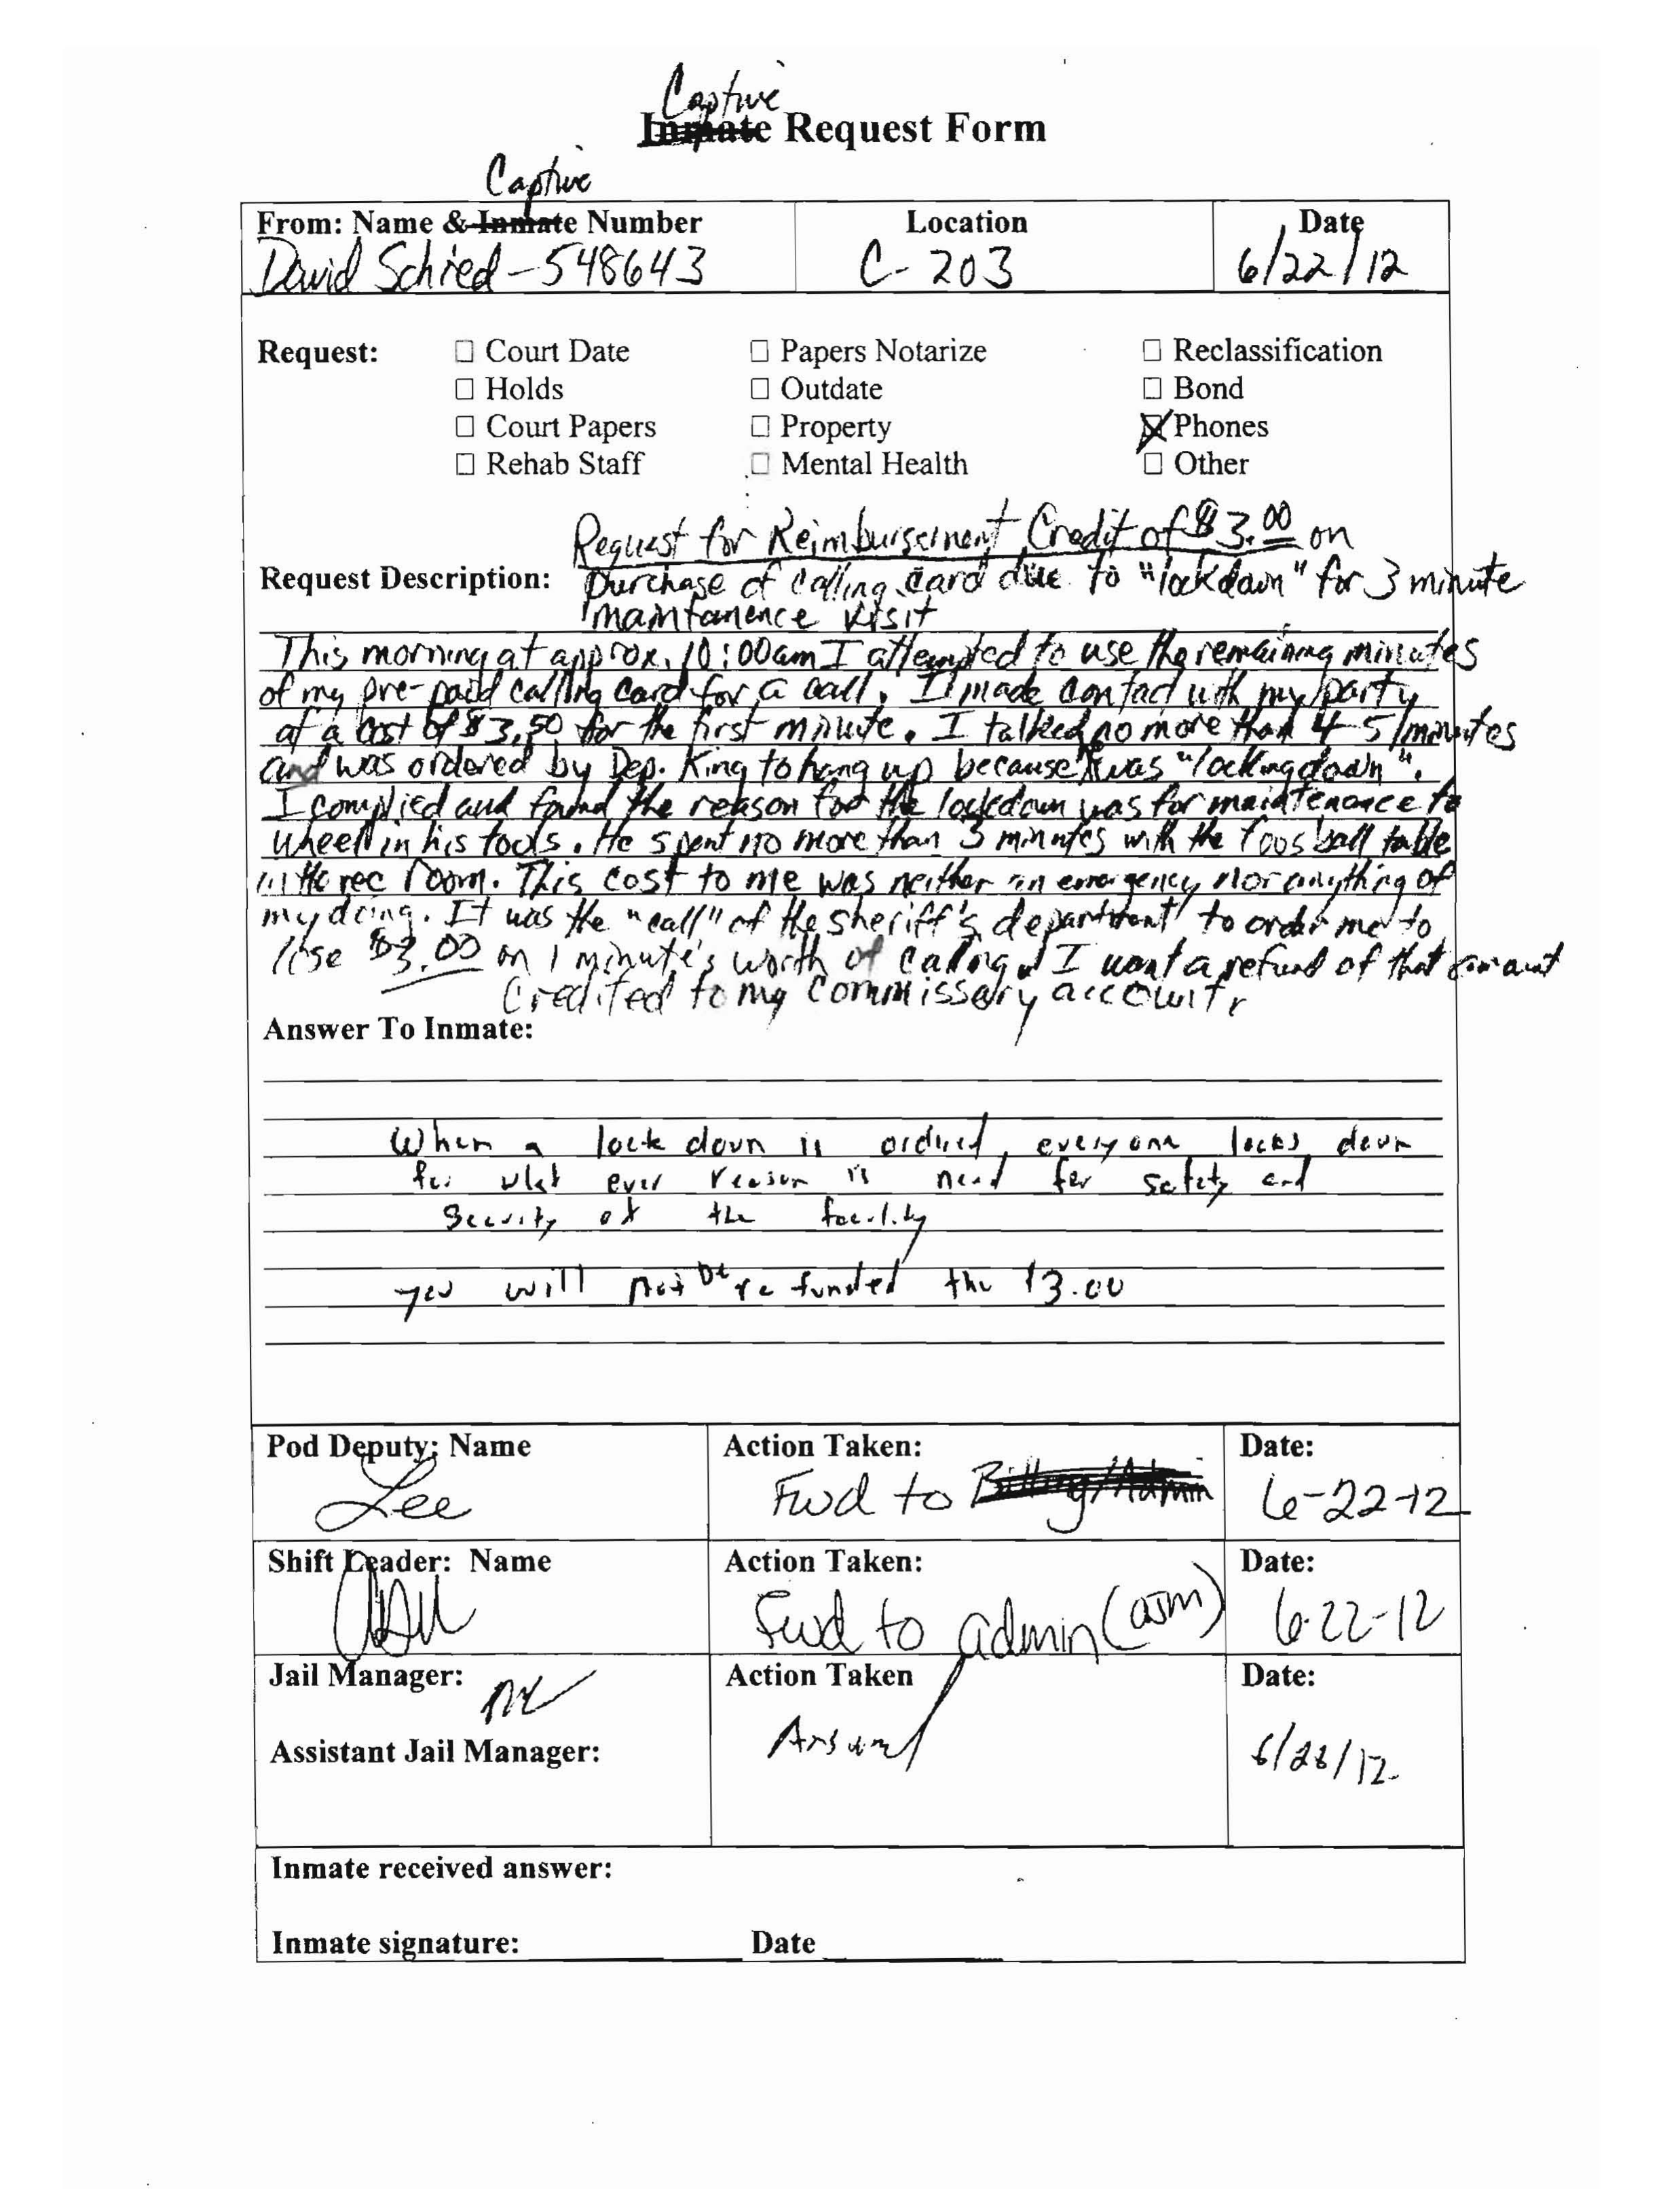 Captive
Inmate Request Form
Captive
From: Name & Inmate Number Location Date
David Schied - 548643 C- 203 6/22/12
Request: ☐ Court Date ☐ Papers Notarize ☐ Reclassification
☐ Holds ☐ Outdate ☐ Bond
☐ Court Papers ☐ Property ☒ Phones
☐ Rehab Staff ☐ Mental Health ☐ Other
Request for Reimbursement Credit of $3.00 on
Request Description: purchase of calling card due to "lockdown" for 3 minute
maintanence visit
This morning at approx. 10:00am I attempted to use the remaining minutes
of my pre-paid calling card for a call. I made contact with my party
at a cost of $3.50 for the first minute. I talked no more than 4-5 minutes
and was ordered by Dep. King to hang up because it was "locking down".
I complied and found the reason for the lockdown was for maintenance to
wheel in his tools. He spent no more than 3 minutes with the foosball table
in the rec room. This cost to me was neither an emergency nor anything of
my doing. It was the "call" of the sheriff's department to order me to
lose $3.00 on 1 minute's worth of calling. I want a refund of that amount
credited to my commissary account.
Answer To Inmate:
When a lock down is ordered, everyone locks down
for what ever reason is need for safety and
security of the facility
you will not be refunded the $3.00
Pod Deputy: Name Action Taken: Date:
Lee Fwd to Billing/Admin 6-22-12
Shift Leader: Name Action Taken: Date:
Fwd to admin (asm) 6-22-12
Jail Manager: Action Taken Date:
Assistant Jail Manager: 6/28/12
Inmate received answer:
Inmate signature: Date